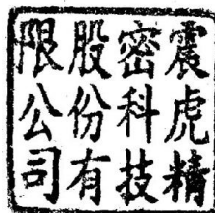 震虎精
密科技
股份有
限公司